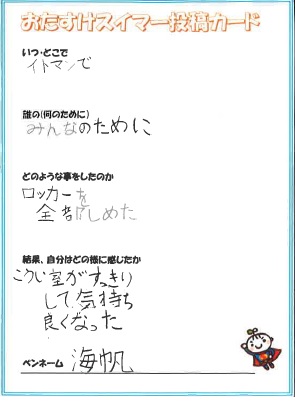 おたすけスイマー投稿カード
いつ・どこで
イトマンで
誰の(何のために)
みんなのために
どのような事をしたのか
ロッカーを
全部しめた
結果、自分はどの様に感じたか
こうい室がすっきり
して気持ち
良くなった
ペンネーム 海帆